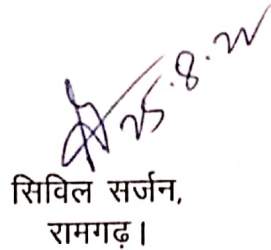 25.8.22
सिविल सर्जन,
रामगढ़।